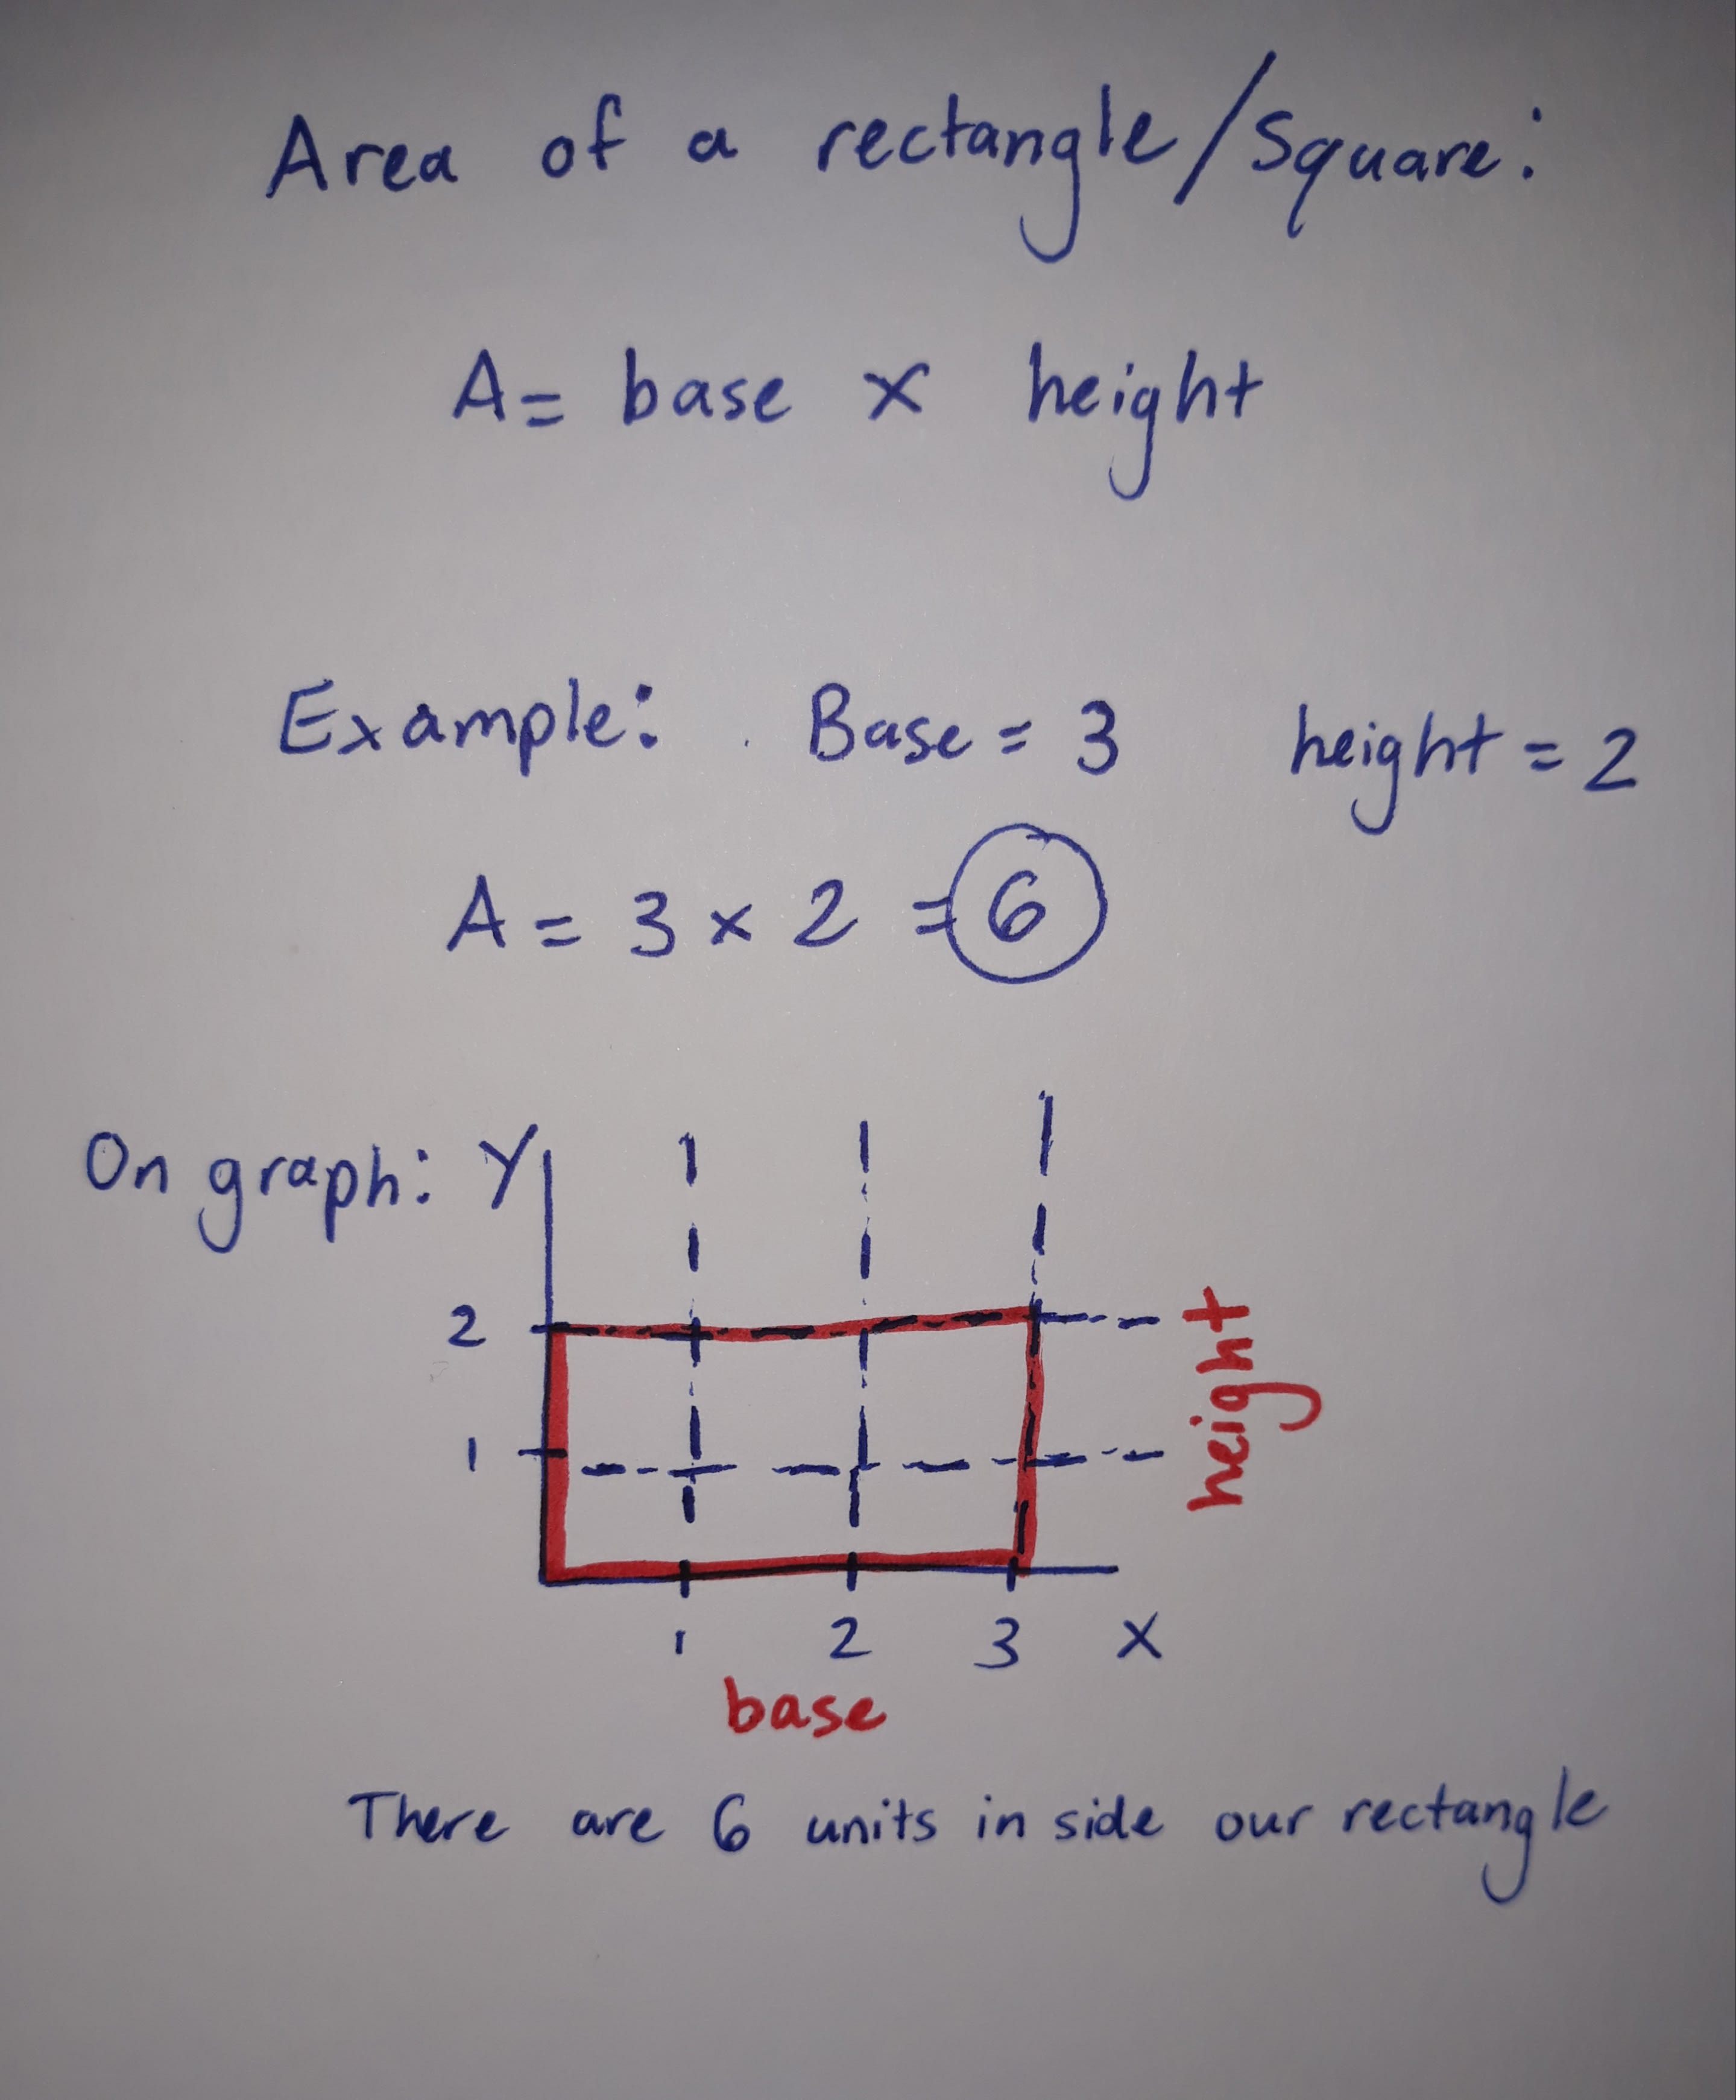 Area of a rectangle/square:
A= base x height
Example: Base = 3 height = 2
A = 3 x 2 = 6
On graph: Y
2
1
height
1 2 3 X
base
There are 6 units in side our rectangle